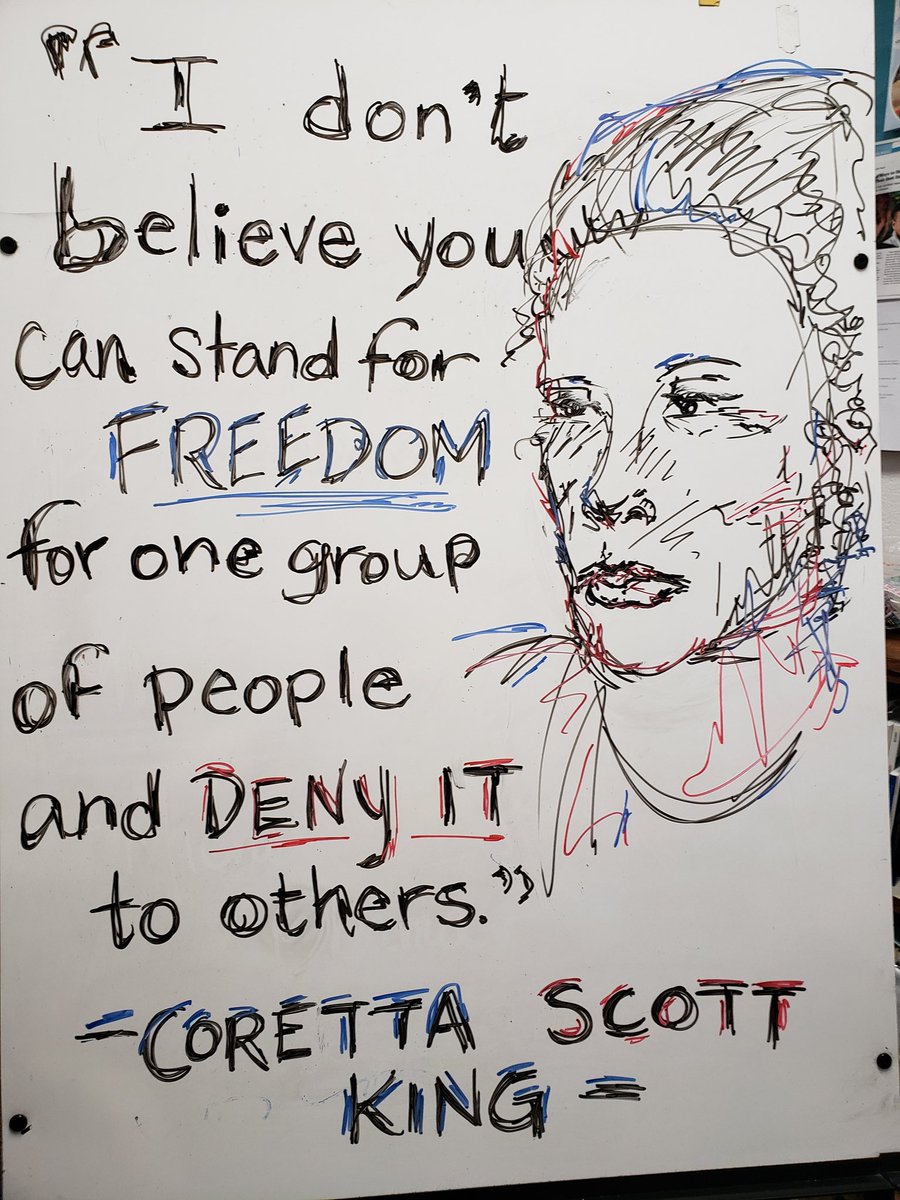 "I don't
believe you
can stand for
FREEDOM
for one group
of people
and DENY IT
to others."
-CORETTA SCOTT
KING=